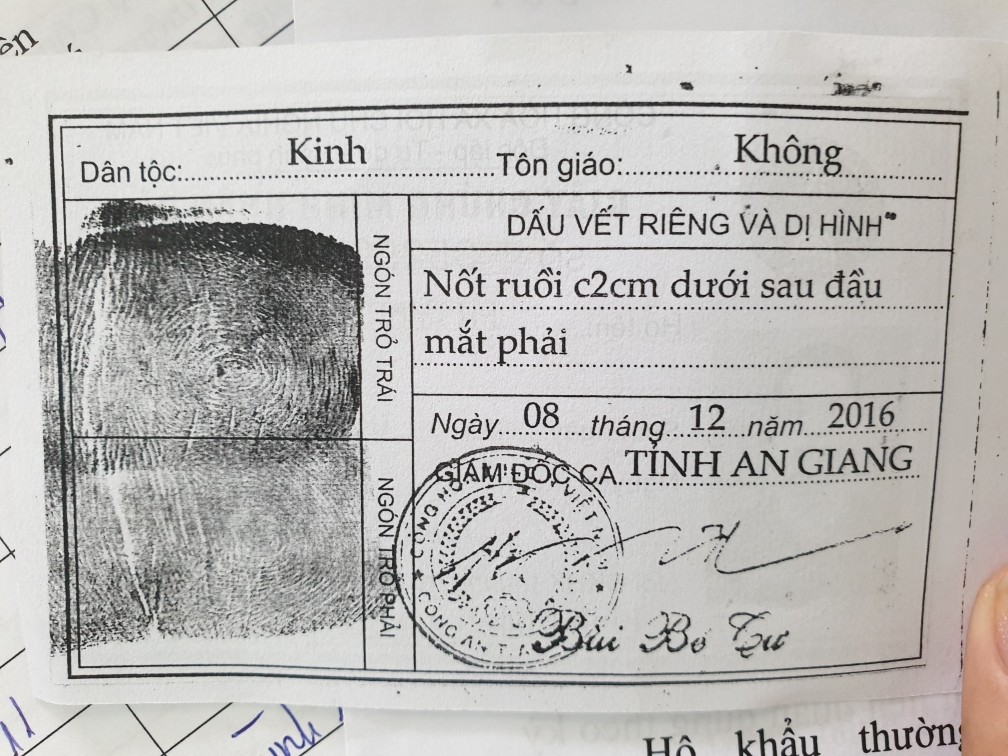 Dân tộc: Kinh Tôn giáo: Không
DẤU VẾT RIÊNG VÀ DỊ HÌNH
NGÓN TRỎ TRÁI
Nốt ruồi c2cm dưới sau đầu
mắt phải
Ngày 08 tháng 12 năm 2016
GIÁM ĐỐC CA TỈNH AN GIANG
NGÓN TRỎ PHẢI
CÔNG AN T.
Bùi Bé Tư
Hộ khẩu thườn